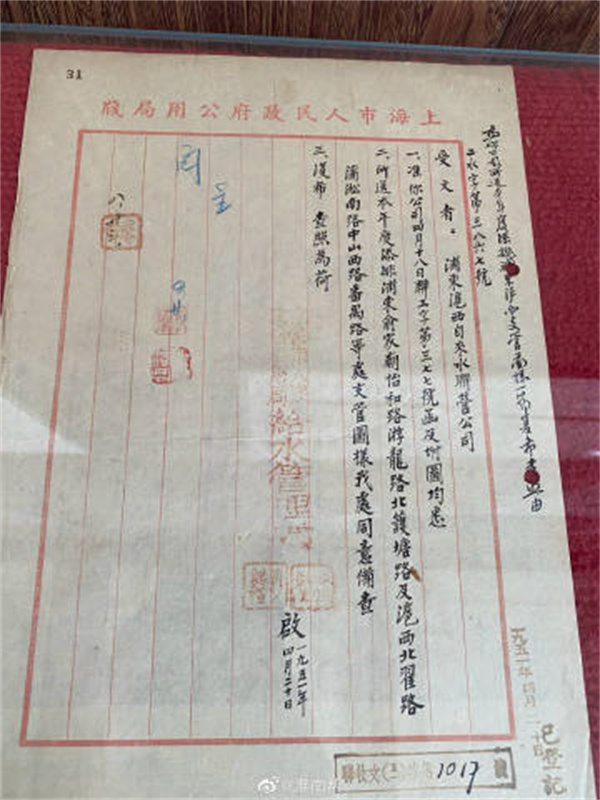 31
上海市人民政府公用局牋
二水字第三八六七號
受文者：浦東滬西自來水聯營公司
一、准你公司四月十八日聯工字第三七七號函及附圖均悉
二、所送本年度添排浦東俞家廟怡和路游龍路北護塘路及滬西北翟路
蒲淞南路中山西路番禺路等處支管圖樣我處同意備查
三、復希 查照為荷
給水管理處
啟
一九五一年
四月二十日
一九五一年四月二十日
已登記
1017
號